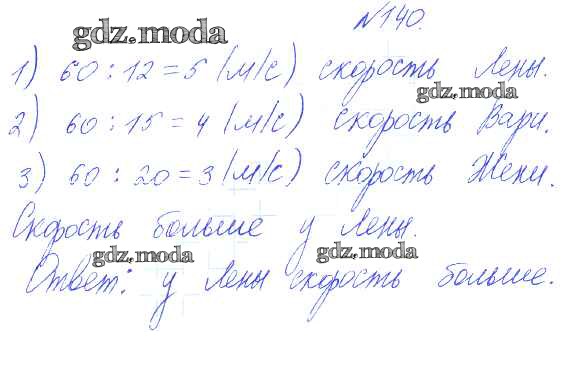 №140.
gdz.moda
1) 60 : 12 = 5 (м/с) скорость Лены.
gdz.moda
2) 60 : 15 = 4 (м/с) скорость Вари.
3) 60 : 20 = 3 (м/с) скорость Жени.
Скорость больше у Лены.
gdz.moda gdz.moda
Ответ: у Лены скорость больше.